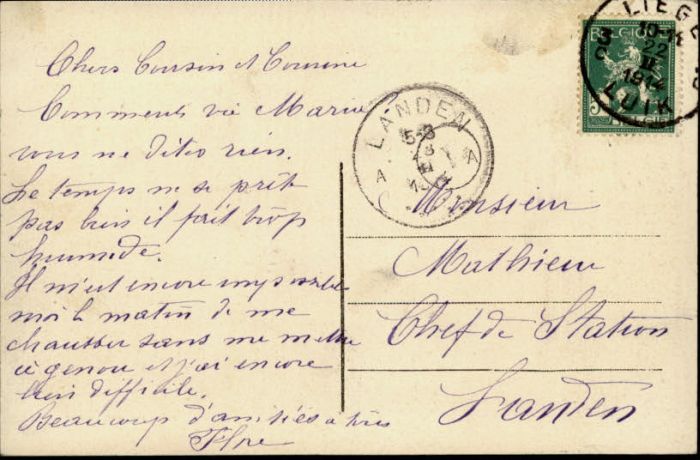 Chers Cousin et Cousine
Comments va Marie
vous ne dites rien.
Le temps ne se prêt
pas bien il fait trop
humide.
Il m'est encore impossible
moi le matin de me
chausser sans me mettre
à genou et j'ai encore
bien difficile.
Beaucoup d'amitiés a tous
Flore
Monsieur
Mathieu
Chef de Station
Landen
LANDEN
A A
LIEGE
3C
10-11
22
II
1914
LUIK
BELGIQUE
5 5
BELGIË